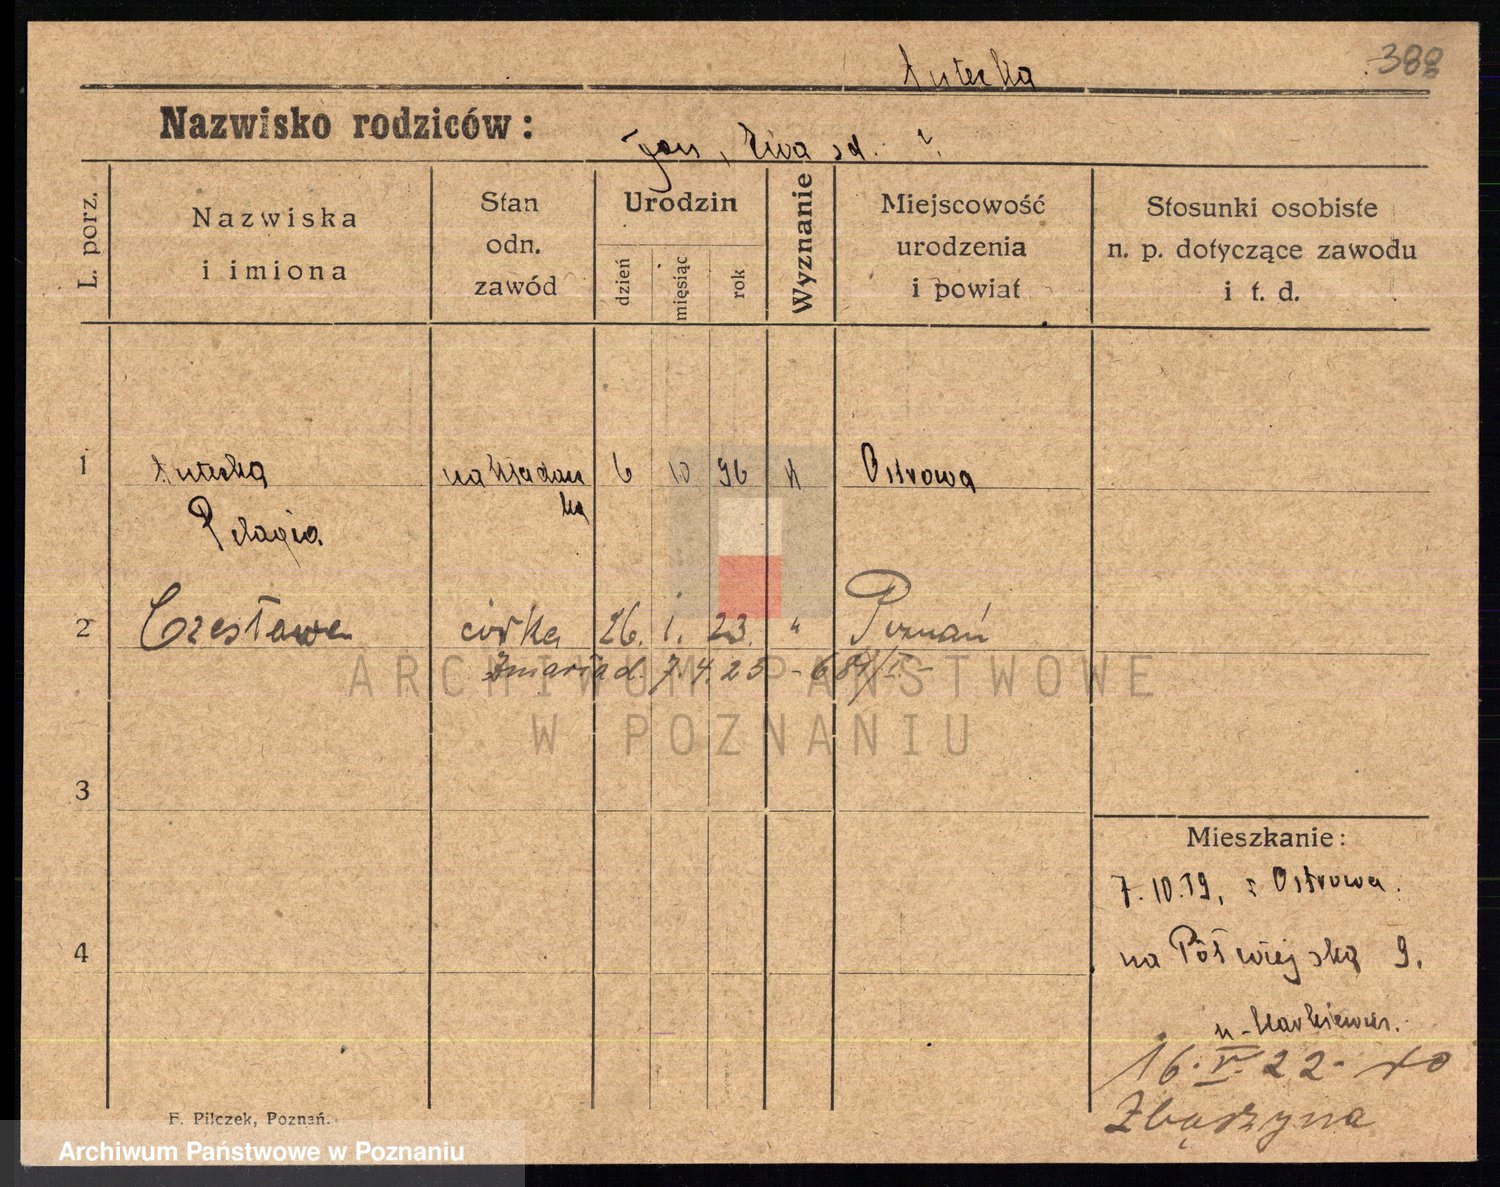 388
Antecka
Nazwisko rodziców:
Jan, Ewa sd. ?
L. porz.
Nazwiska
i imiona
Stan
odn.
zawód
Urodzin
dzień
miesiąc
rok
Wyznanie
Miejscowość
urodzenia
i powiat
Stosunki osobiste
n. p. dotyczące zawodu
i t. d.
1 Antecka nakładacz 6 10 96 k Ostrowa
ka
Pelagia
2 Czesława córka 26. 1. 23. " Poznań
Zmarła d. 7.4.25 - 684/I. -
ARCHIWUM PAŃSTWOWE
W POZNANIU
3
Mieszkanie:
7.10.19, z Ostrowa.
4
na Półwiejską 9.
u
16.V.22. do
Zbąszyna
F. Pilczek, Poznań.
Archiwum Państwowe w Poznaniu